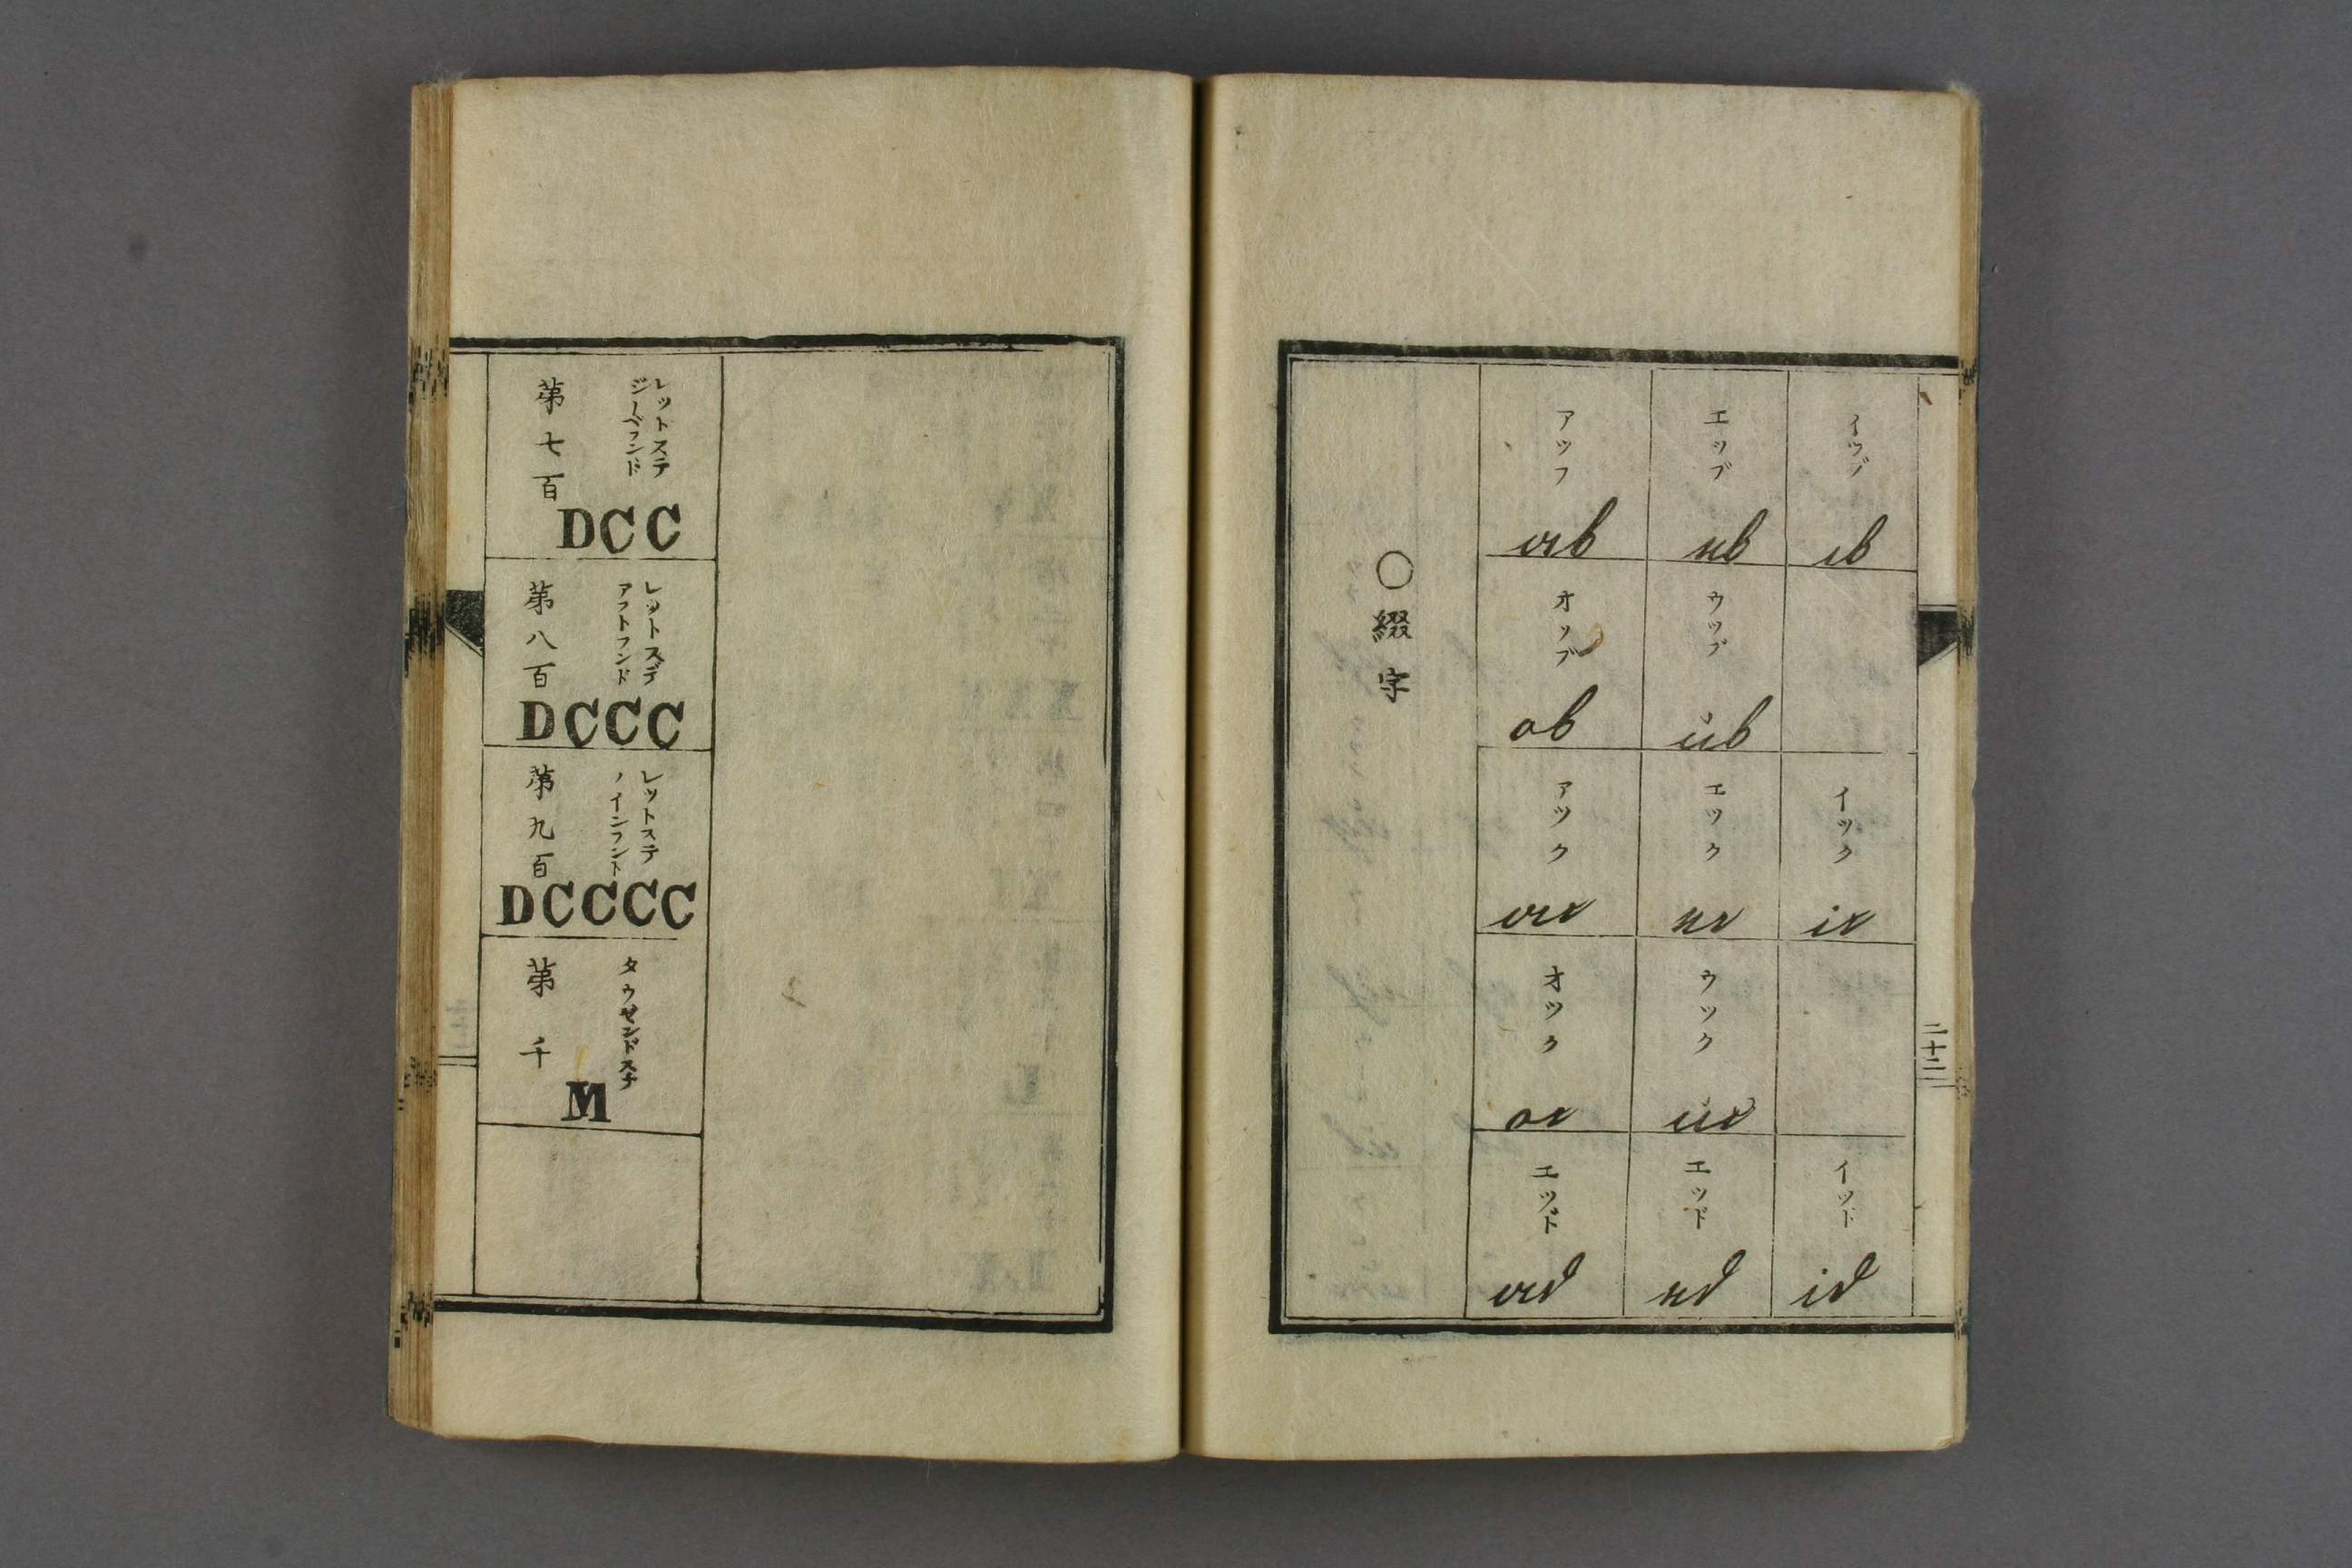 第七百
ジーベフンド
レットステ
DCC
第八百
アフトフンド
レットステ
DCCC
第九百
ノインフント
レットステ
DCCCC
第千
タウゼンドステ
M
○綴字
アツフ
ab
エツブ
eb
イツブ
ib
オツブ
ob
ウツブ
ub
アツク
ac
エツク
ec
イツク
ic
オツク
oc
ウツク
uc
エツド
ad
エツド
ed
イツド
id
二十二